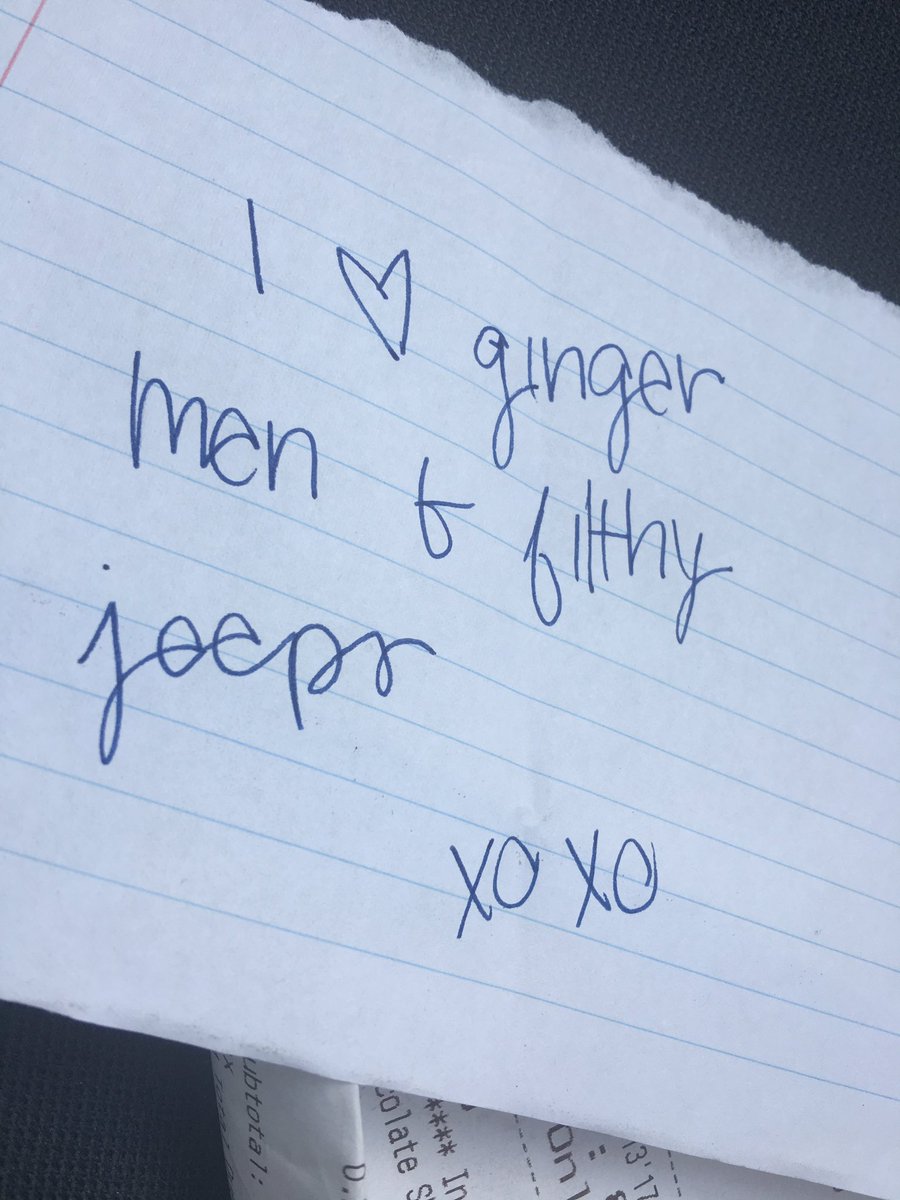 I ♡ ginger
men & filthy
jeeps
xoxo
ubtotal:
colate S
**** In
3'17
D.